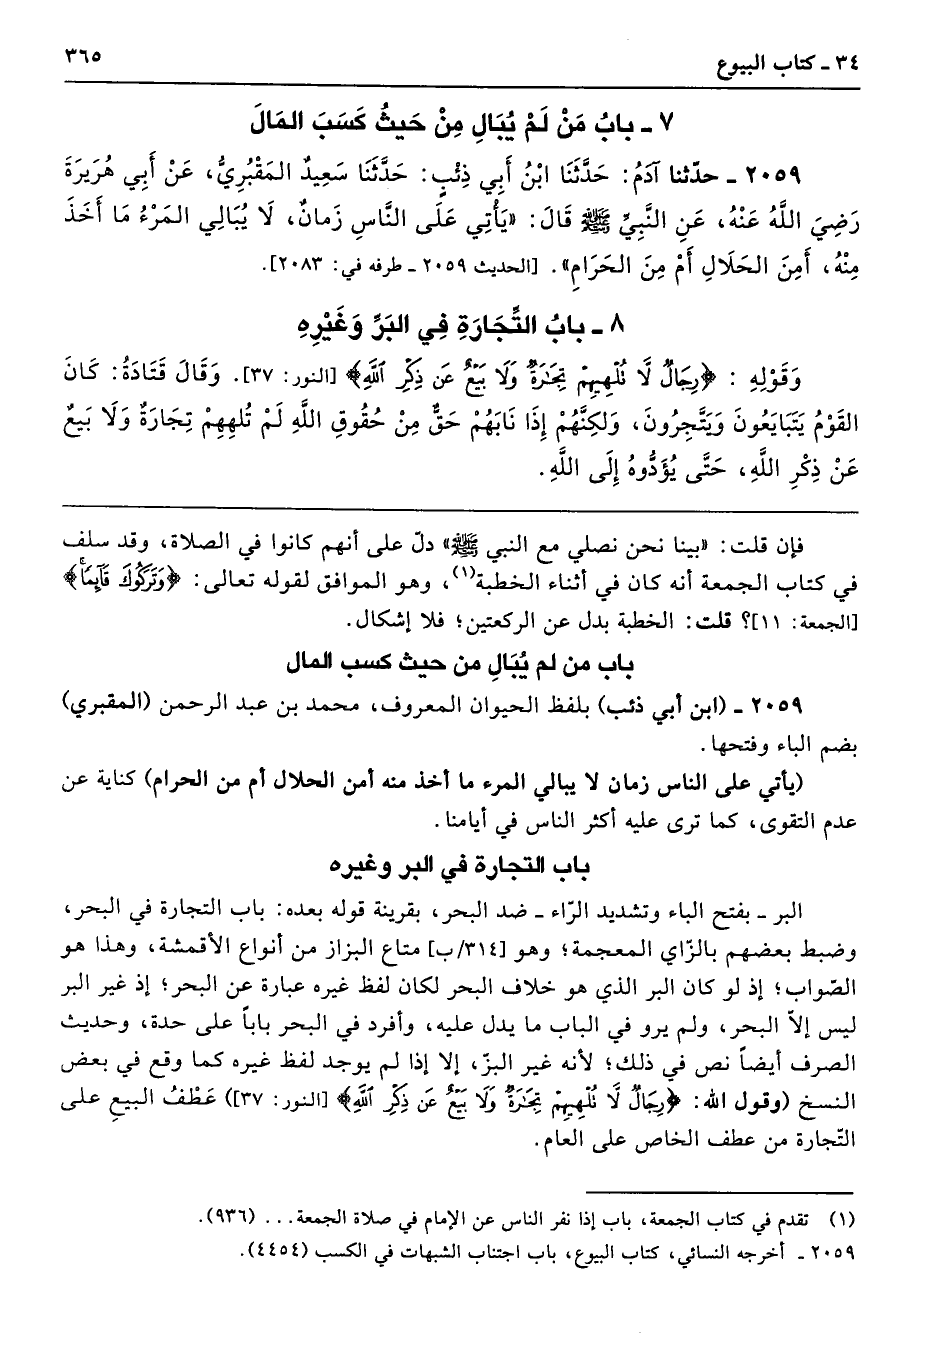 ٣٤ ـ كتاب البيوع
٣٦٥
٧ ـ بابُ مَنْ لَمْ يُبَالِ مِنْ حَيثُ كَسَبَ المَالَ
٢٠٥٩ ـ حدّثنا آدَمُ: حَدَّثَنَا ابْنُ أَبِي ذِئْبٍ: حَدَّثَنَا سَعِيدٌ المَقْبُرِيُّ، عَنْ أَبِي هُرَيرَةَ
رَضِيَ اللَّهُ عَنْهُ، عَنِ النَّبِيِّ ﷺ قَالَ: «يَأْتِي عَلَى النَّاسِ زَمانٌ، لَا يُبَالِي المَرْءُ مَا أَخَذَ
مِنْهُ، أَمِنَ الحَلَالِ أَمْ مِنَ الحَرَامِ». [الحديث ٢٠٥٩ ـ طرفه في: ٢٠٨٣].
٨ ـ بابُ التِّجَارَةِ فِي البَرِّ وَغَيْرِهِ
وَقَوْلِهِ : ﴿رِجَالٌ لَّا تُلْهِيهِمْ تِجَٰرَةٌ وَلَا بَيْعٌ عَن ذِكْرِ ٱللَّهِ﴾ [النور: ٣٧]. وَقَالَ قَتَادَةُ: كَانَ
القَوْمُ يَتَبَايَعُونَ وَيَتَّجِرُونَ، وَلكِنَّهُمْ إِذَا نَابَهُمْ حَقٌّ مِنْ حُقُوقِ اللَّهِ لَمْ تُلهِهِمْ تِجَارَةٌ وَلَا بَيعٌ
عَنْ ذِكْرِ اللَّهِ، حَتَّى يُؤَدُّوهُ إِلَى اللَّهِ.
فإن قلت: «بينا نحن نصلي مع النبي ﷺ» دلّ على أنهم كانوا في الصلاة، وقد سلف
في كتاب الجمعة أنه كان في أثناء الخطبة(١)، وهو الموافق لقوله تعالى: ﴿وَتَرَكُوكَ قَآئِمًا﴾
[الجمعة: ١١]؟ قلت: الخطبة بدل عن الركعتين؛ فلا إشكال.
باب من لم يُبَالِ من حيث كسب المال
٢٠٥٩ ـ (ابن أبي ذئب) بلفظ الحيوان المعروف، محمد بن عبد الرحمن (المقبري)
بضم الباء وفتحها.
(يأتي على الناس زمان لا يبالي المرء ما أخذ منه أمن الحلال أم من الحرام) كناية عن
عدم التقوى، كما ترى عليه أكثر الناس في أيامنا.
باب التجارة في البر وغيره
البر ـ بفتح الباء وتشديد الرّاء ـ ضد البحر، بقرينة قوله بعده: باب التجارة في البحر،
وضبط بعضهم بالزّاي المعجمة؛ وهو [٣١٤/ب] متاع البزاز من أنواع الأقمشة، وهذا هو
الصّواب؛ إذ لو كان البر الذي هو خلاف البحر لكان لفظ غيره عبارة عن البحر؛ إذ غير البر
ليس إلاّ البحر، ولم يرو في الباب ما يدل عليه، وأفرد في البحر باباً على حدة، وحديث
الصرف أيضاً نص في ذلك؛ لأنه غير البزّ، إلا إذا لم يوجد لفظ غيره كما وقع في بعض
النسخ (وقول الله: ﴿رِجَالٌ لَّا تُلْهِيهِمْ تِجَٰرَةٌ وَلَا بَيْعٌ عَن ذِكْرِ ٱللَّهِ﴾ [النور: ٣٧]) عَطْفُ البيعِ على
التّجارة من عطف الخاص على العام.
(١) تقدم في كتاب الجمعة، باب إذا نفر الناس عن الإمام في صلاة الجمعة... (٩٣٦).
٢٠٥٩ ـ أخرجه النسائي، كتاب البيوع، باب اجتناب الشبهات في الكسب (٤٤٥٤).